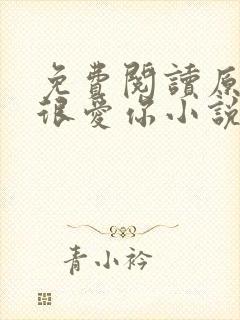 免費閱讀原
很愛你小說
青小衿